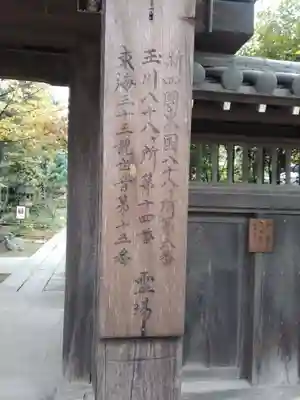 新四國 國八十八 番
玉川八十八所第十四番
東海三十三観世音第十五番
霊場